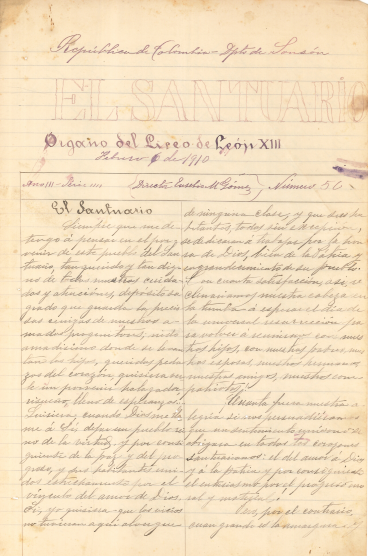 República de Colombia - Dpto de Sonsón
EL SANTUARIO
Organo del Liceo de León XIII
Febrero 6 de 1910
Año III - Director M Gómez Número 56
El Santuario
Siempre que me de-
tengo á pensar en el por-
venir de este pueblo del San-
tuario, tan querido y tan dig-
no de todos nuestros cuida-
dos y atenciones, depósito sa-
grado que guarda las precio-
sas cenizas de nuestros a-
mados progenitores, nido
amadísimo donde se
los hijos, queridos peda-
zos del corazón, quisiera ver-
le un porvenir halagador,
risueño, lleno de esperanzas.
Quisiera, cuando Dios me lla-
me á Sí, dejar un pueblo lle-
no de la virtud, y por consi-
guiente de la paz y del pro-
greso, y sus habitantes uni-
dos estrechamente por el
vínculo del amor de Dios.
Sí, yo quisiera que los vicios
no tuvieran aquí albergue
de ninguna clase, y que sus ha-
bitantes, todos
se desvivan á trabajar por la hon-
ra de Dios, bien de la Patria y
engrandecimiento de su pueblo.
Y en cuanta satisfacción, así, re-
clinaríamos nuestra cabeza en
la tumba á esperar el día de
la universal resurrección pa-
ra volver á reunirnos con nues-
tros hijos, con nuestros padres, nues-
tras esposas, nuestros hermanos
nuestros amigos, nuestros com-
patriotas!
Cuánta fuera nuestra a-
legría si nos persuadiéramos
que un sentimiento unísono se
abrigara en todos los corazones
santuarianos: el del amor á Dios
y á la patria y por consiguiente
el entusiasmo por el progreso mo-
ral y material.
Pero, por el contrario,
cuan grande es la amargura y